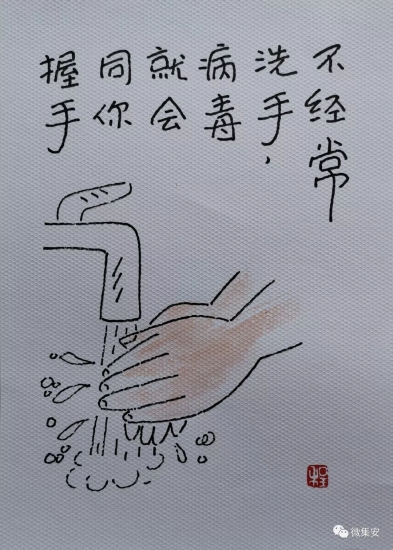 不经常
洗手，
病毒
就会
同你
握手
微集安